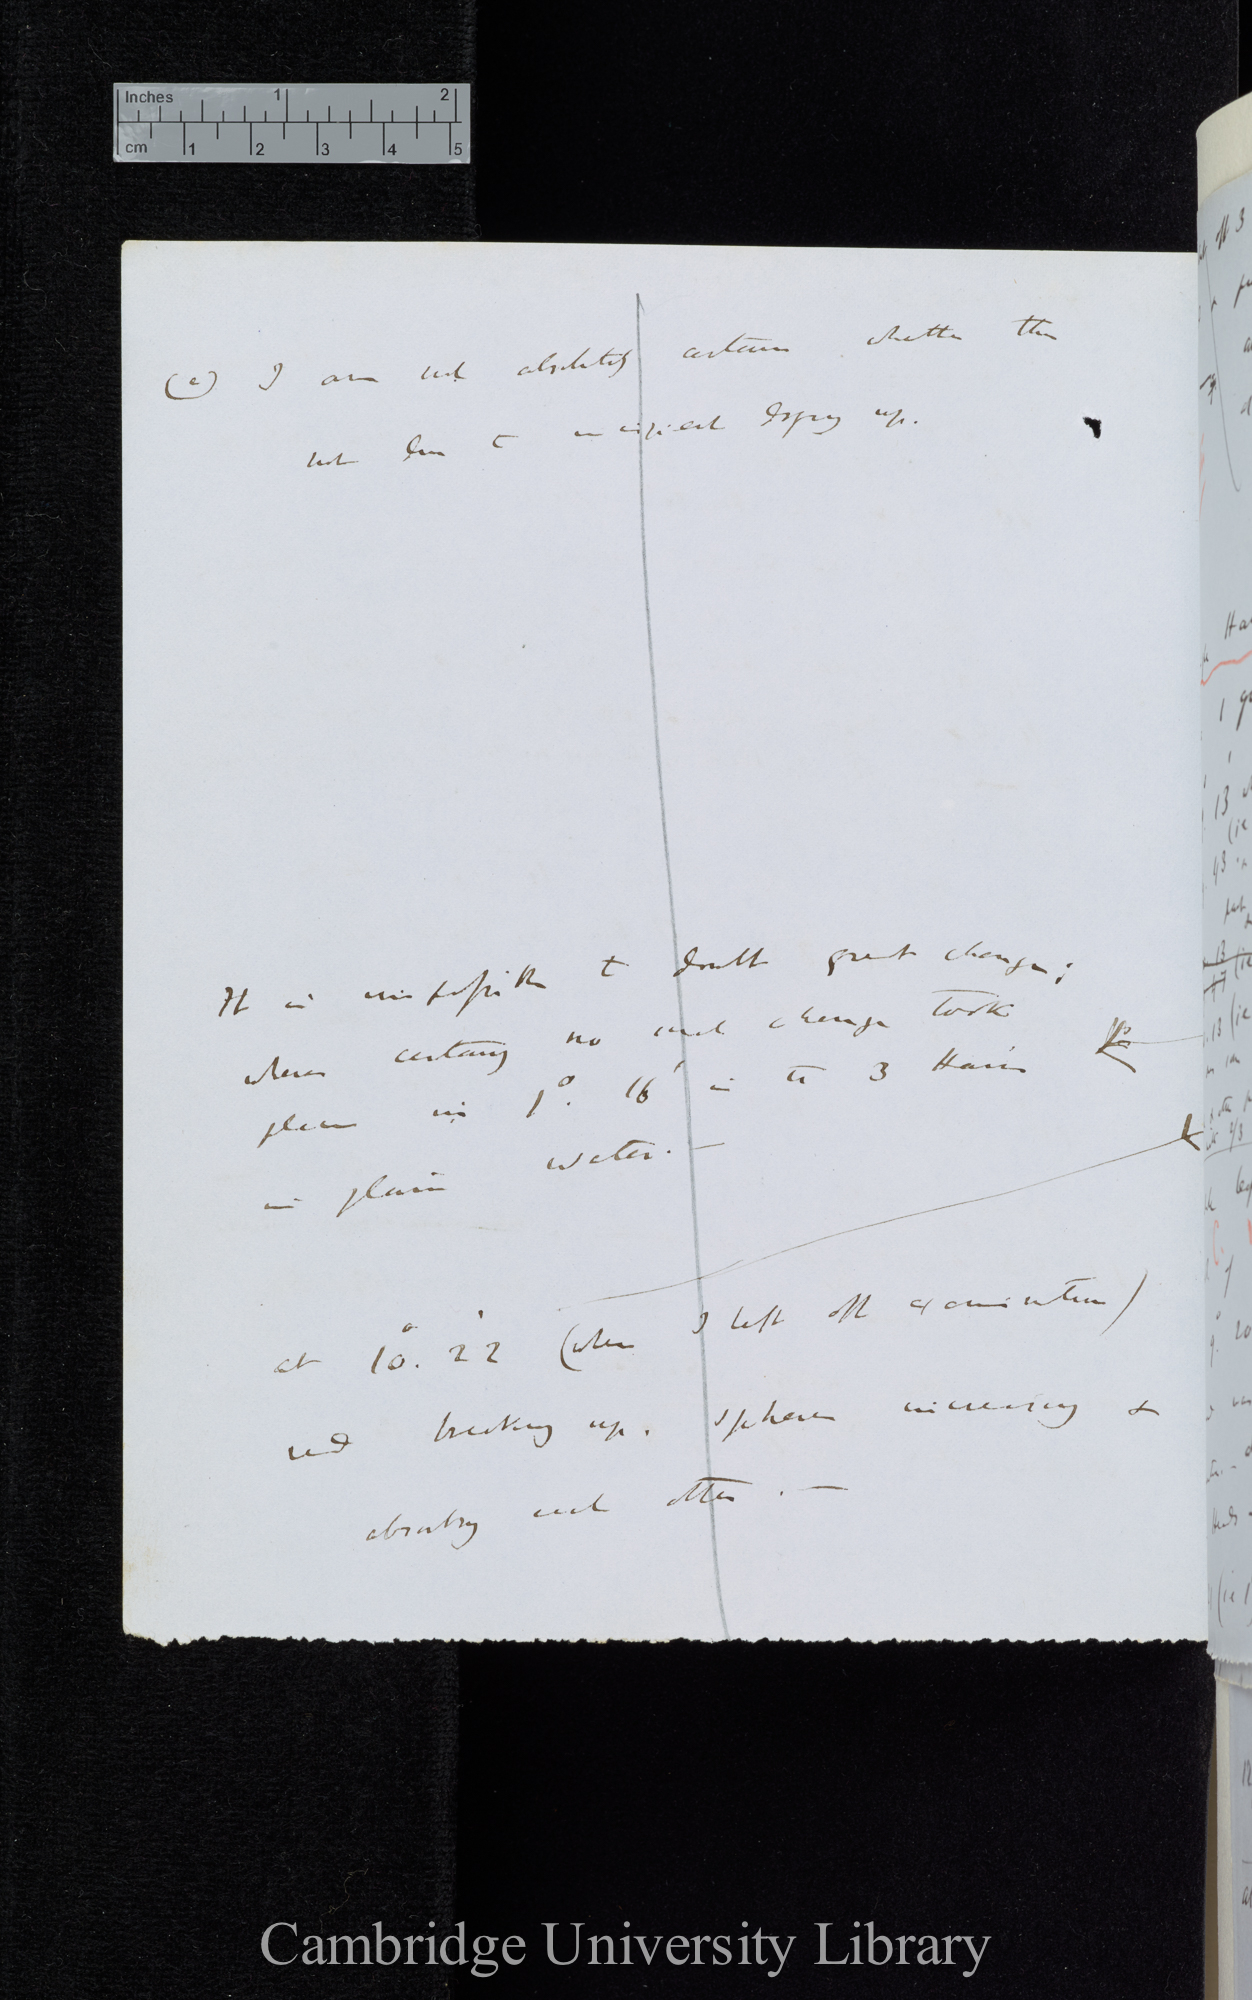 Inches 1 2
cm 1 2 3 4 5
(a) I am not absolutely certain whether this
not due to incipient drying up.
It is impossible to doubt great change;
whereas certainly no such change took
place in 1°. 16' in the 3 Hairs
in plain water. —
at 10°. 22' (when I left off examination)
red breaking up. Spheres increasing &
absorbing each other. —
Cambridge University Library